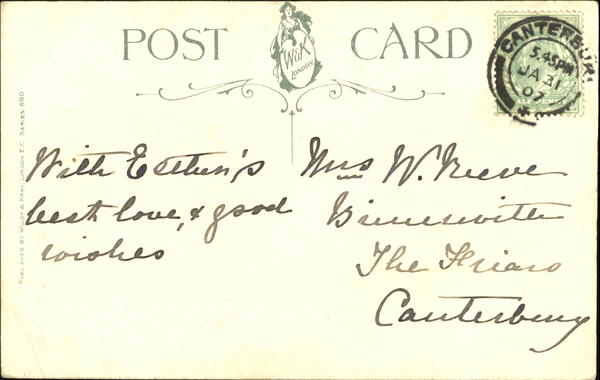 POST CARD
W&K
LONDON
CANTERBURY
5.45PM
JA 31
07
PUBLISHED BY WILDT & KRAY, LONDON E.C. SERIES 690
With Esther's
best love, & good
wishes
Mrs W. Reeve
The Friars
Canterbury